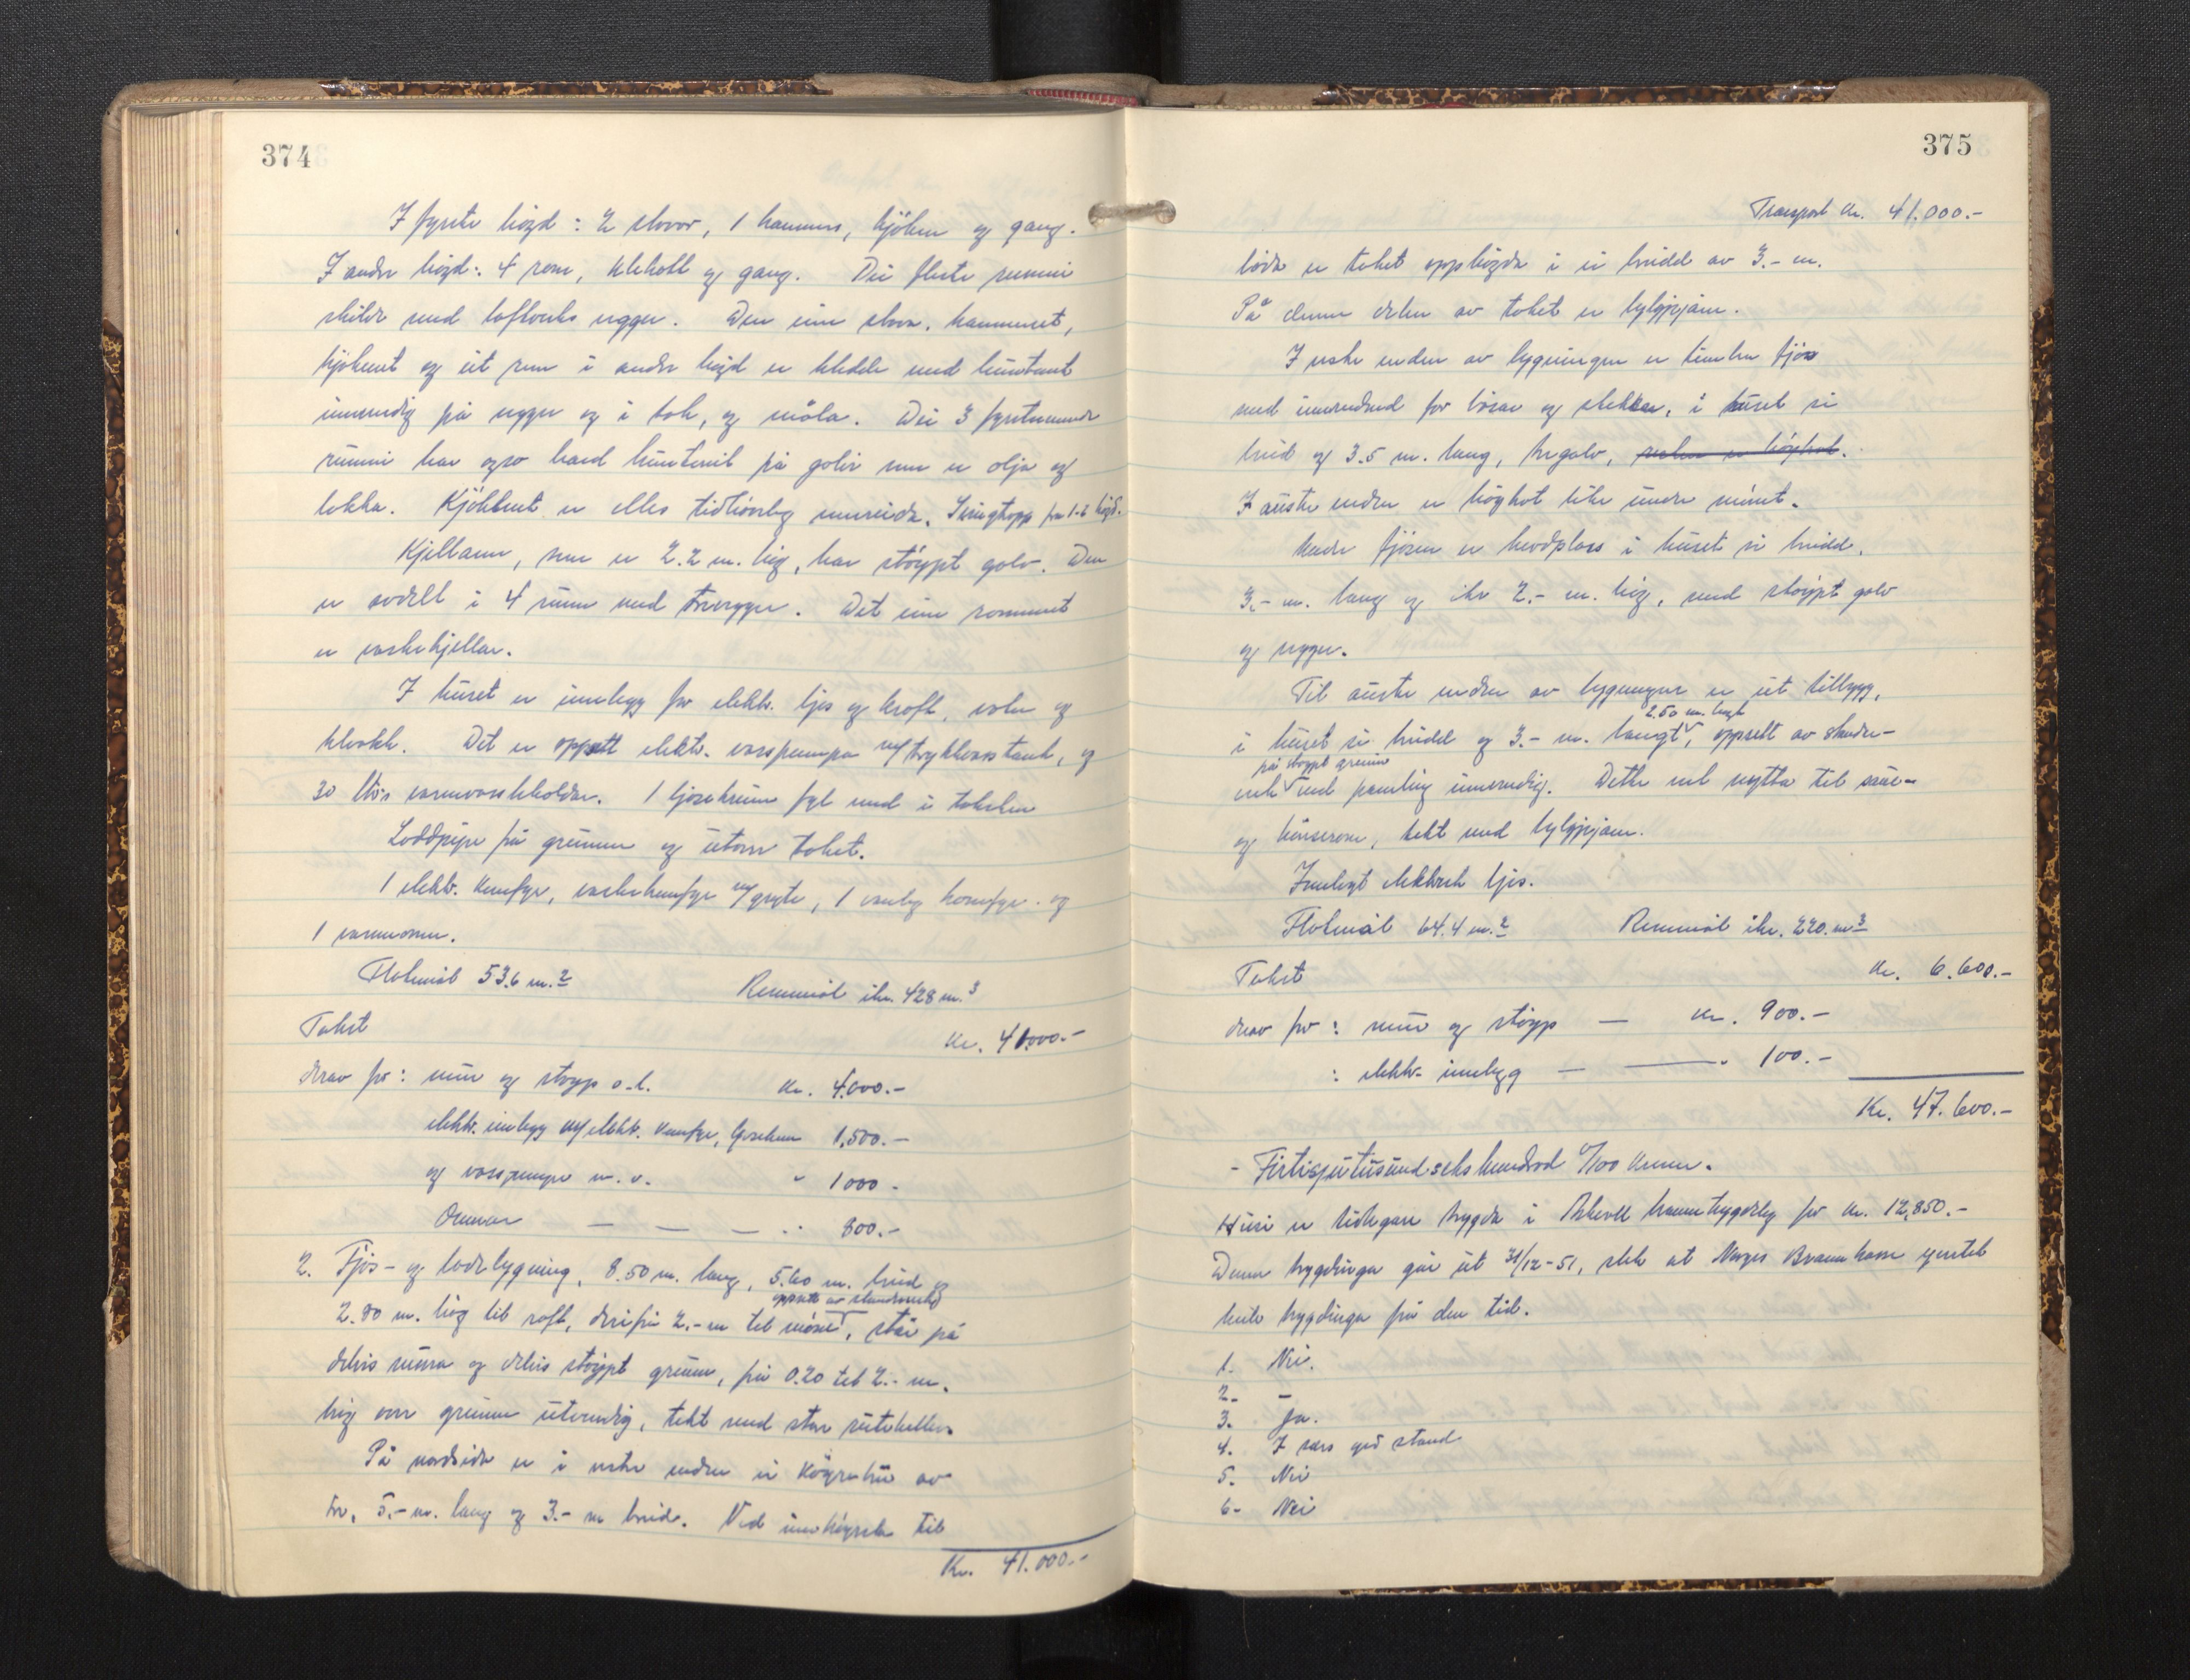 374
I fyrste högd: 2 stovor, 1 kammers, kjöken og gang.
I andre högd: 4 rom, klekott og gang. Dei fleste rummi
skilde med loftverks vegger. Den eine stova, kammerset,
kjökenet og eit rom i andre högd er kledde med huntonit
innvendig på vegger og i tak, og måla. Dei 3 fyrstnemnde
rummi har og so hard huntonit på golvi som er olja og
lakka. Kjökkenet er elles tidhöveleg innreida. Svingtropp fra 1-2 högd.
Kjellaren, som er 2.2 m. hög, har stöypt golv. Den
er avdelt i 4 rum med trevegger. Det eine rommet
er vaskekjellar.
I huset er innlegg for elektr. ljos og kraft, vatn og
kloakk. Det er oppsett elektr. vasspumpa m/ trykkvasstank, og
30 litr's varmvassbehaldar. 1 ljosekrune fyl med i taksten
Loddpipe frå grunnen og utover taket.
1 elektr. komfyr, vaskekomfyr m/ gryte, 1 vanleg komfyr og
1 varmeomn.
Flatemål 53.6 m.2 Romemål ikr. 428 m.3
Takst kr. 41.000.-
derav for: mur og stöyp o.l. kr. 4.000.-
elektr. innlegg m/ elektr. komfyr, ljosekrun 1.500.-
og vasspumpe m. v. " 1000.-
Omnar — — — " 800.-
2. Fjös- og lödebygning, 8.50 m. lang, 5.60 m. breid og
oppsett av stenderverk
2.80 m. hög til raft, derifrå 2.- m til mönet, står på
delvis mura og delvis stöypt grunn, frå 0.20 til 2.- m.
hög over grunnen utvendig, tekt med stor rutehelle.
På nordsida er i vestre enden ei köyrebru av
tre, 5.- m. lang og 3.- m breid. Ved innköyrsla til
Kr. 41.000.-
375
Transport kr. 41.000.-
löda er taket opphögda i ei breidd av 3.- m.
På denne delen av taket er bylgjejarn.
I vestre enden av bygningen er timbra fjös
med innreidnad for båsar og stekkar, i huset si
breid og 3.5 m. lang, tregolv,
I austre enden er höykot like under mönet.
Under fjösen er havdplass i huset si breidd,
3.- m. lang og ikr 2.- m. hög, med stöypt golv
og vegger.
Til austre enden av bygningen er eit tilbygg,
2.50 m. högt
i huset si breidd og 3.- m. langt, oppsett av stender-
på stöypt grunn
verk med paneling innvendig. Dette vert nytta til saue-
og hönserom, tekt med bylgjejarn.
Innlagt elektrisk ljos.
Flatemål 64.4 m.2 Romemål ikr. 220. m3
Takst kr. 6.600.-
derav for: mur og stöyp — kr. 900.-
: elektr. innlegg — — " 100.-
Kr. 47.600.-
- Førtisjutusund seks hundrad 0/100 kroner.
Husi er tidlegare trygda i Askvoll branntrygdelag for kr. 12.850.-
Denne trygdinga går ut 31/12-51, slik at Norges Brannkasse yvertek
heile trygdinga frå den tid.
1. Nei.
2. -
3. Ja.
4. I særs god stand
5. Nei
6. Nei